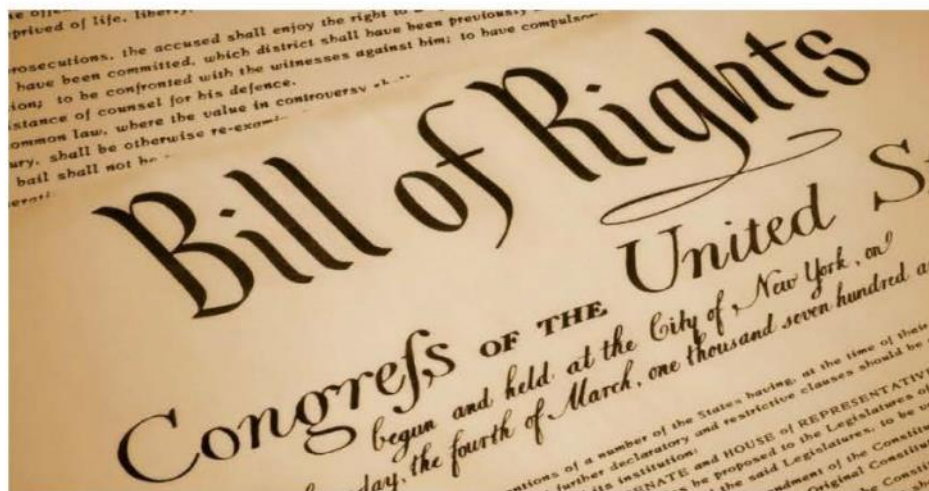 prived of life, liberty,
prosecutions, the accused shall enjoy the right to
have been committed, which district shall have been previously
tion; to be confronted with the witnesses against him; to have compulso
istance of counsel for his defence.
ommon law, where the value in controversy
ury, shall be otherwise re-exami
bail shall not be
Bill of Rights
Congreſs OF THE United S
begun and held at the City of New York, on
day, the fourth of March, one thousand seven hundred a
entions of a number of the States having, at the time of their
further declaratory and restrictive clauses should be
its institution:
ENATE and HOUSE of REPRESENTATIVE
BE proposed to the Legislatures of
the said Legislatures, to be
endment of the Constitu
Original Constitut
the Constitu